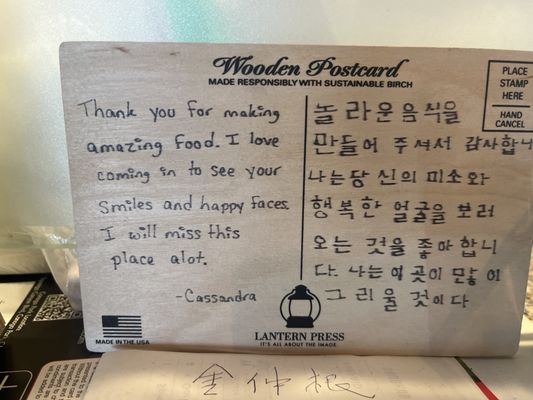 Wooden Postcard
MADE RESPONSIBLY WITH SUSTAINABLE BIRCH
PLACE
STAMP
HERE
HAND
CANCEL
Thank you for making
amazing food. I love
coming in to see your
Smiles and happy faces.
I will miss this
place alot.
-Cassandra
놀라운음식을
만들어 주셔서 감사합니
나는당신의 미소와
행복한 얼굴을 보러
오는 것을 좋아합니
다. 나는 이 곳이 많이
그리울 것이다
MADE IN THE USA
LANTERN PRESS
IT'S ALL ABOUT THE IMAGE.
金仲根